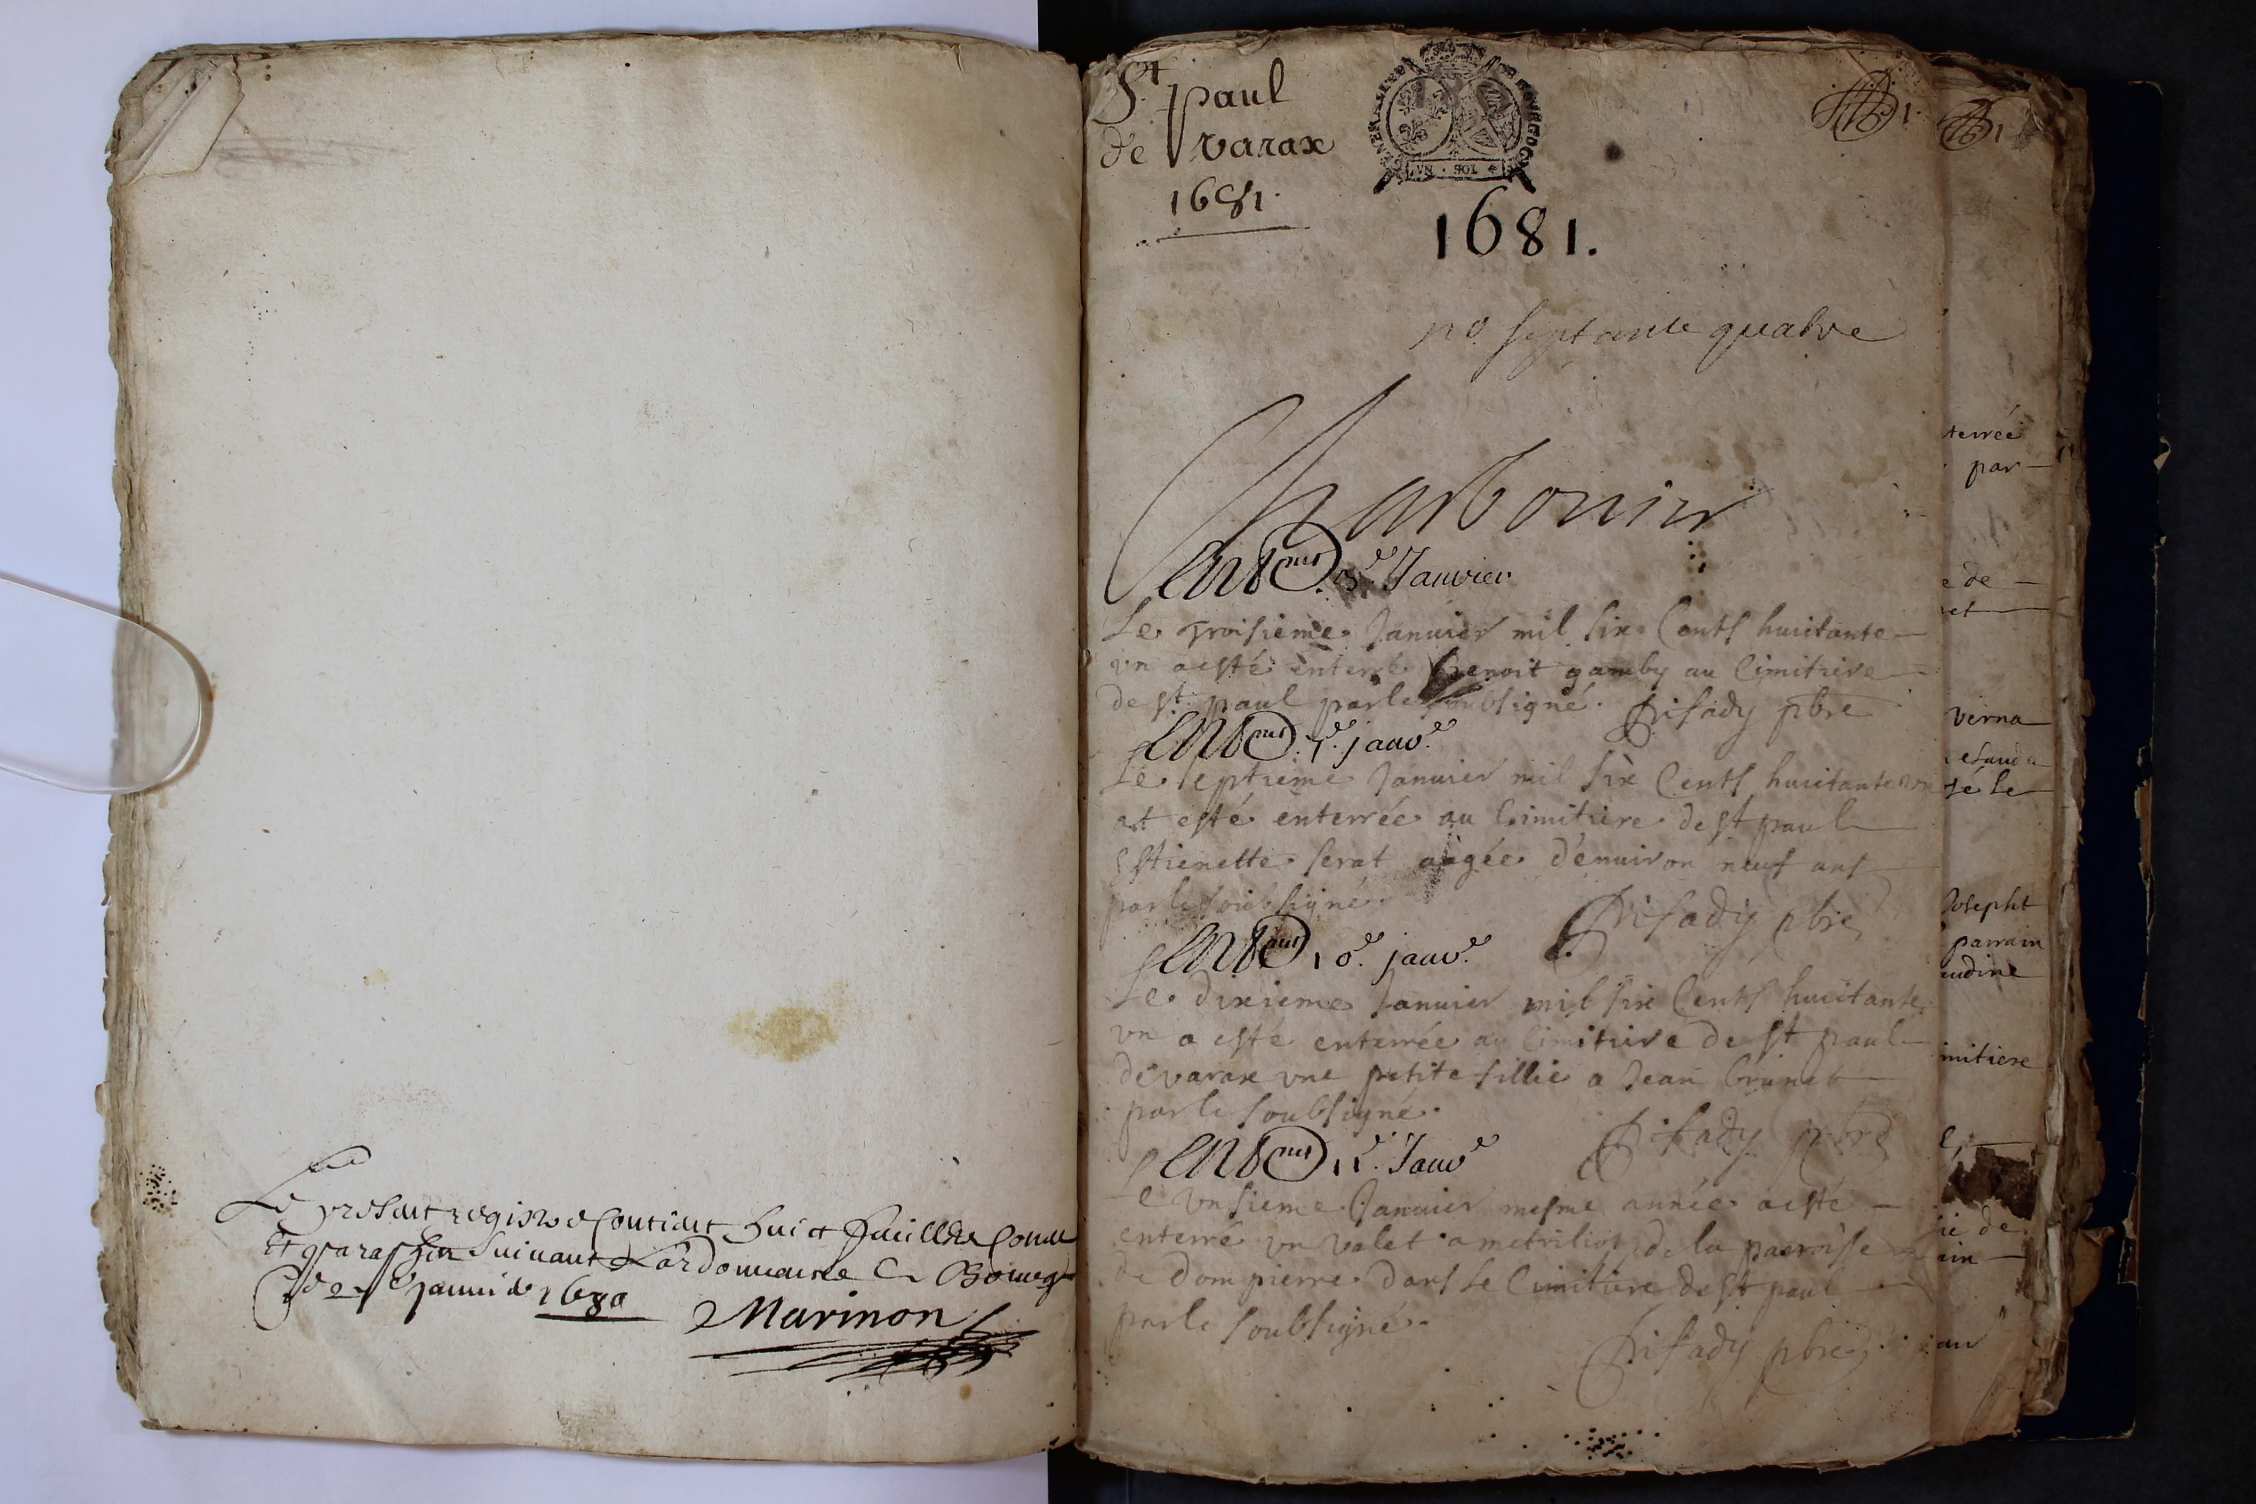 Le present registre Contient huict feuillets Cottés
Et paraphés suivant L'ordonnance
de 1680
Marinon
St paul
de varax
1681.
VN · SOL
1681.
no septante quatre
Charbonier
Enterrement 3e Janvier
Le Troisieme Januier mil six Cents huictante
vn a esté enterré Benoit gamby au Cimitiere
de st paul par le soubsigné. Brisady pbre
Enterrement 7e janv.e
Le septieme Januier mil six Cents huictante vn
at esté enterrée au Cimitiere de st paul
Estienette serat aagée d'enuiron neuf ans
par le soubsigné. Brisady pbre
Enterrement 10e janv.e
Le dixieme Januier mil six Cents huictante
vn a esté enterrée au Cimitiere de st paul
de varax vne petite fillie a Jean brunet
par le soubsigné. Brisady pbre
Enterrement 11e Janve
Le vnsieme Januier mesme année a esté
enterré vn valet a de la parroisse
de Dompierre dans le Cimitiere de st paul
par le soubsigné. Brisady pbre
1
terrée
par
e de
verna
sé le
Josepht
parrain
audine
imitiere
ie de
ain